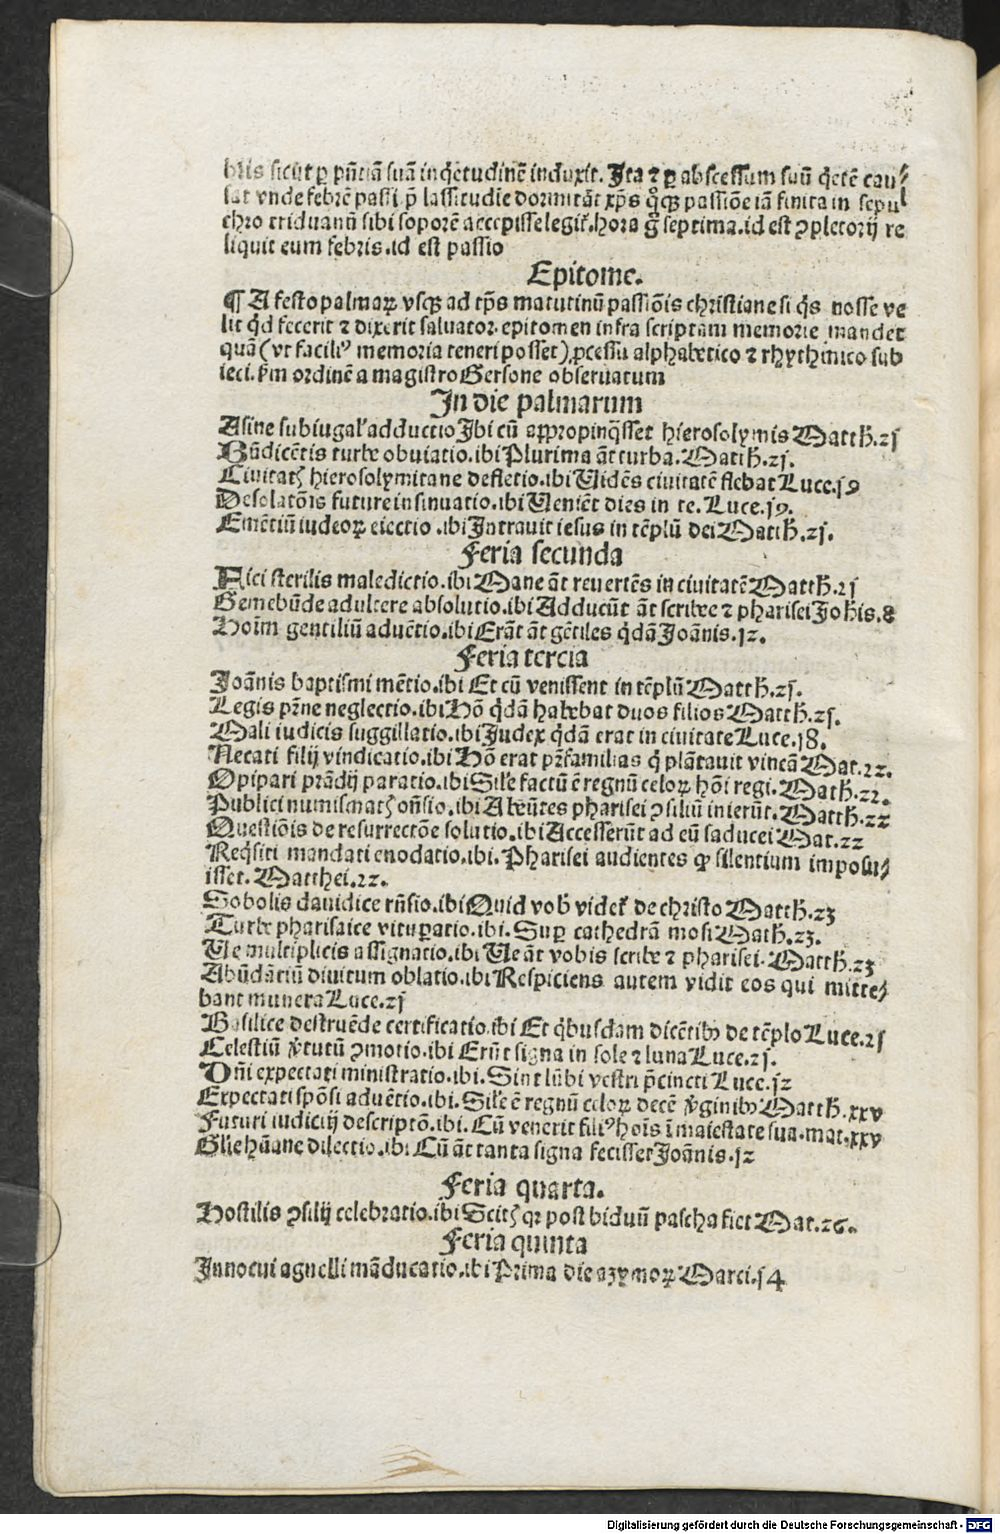 bris sicut ꝑ p̄n̄tiā suā inq̇etudinē induxit. Ita ⁊ ꝑ abscessum suū q̇etē cau⸗
sat vnde febrē passi p̄ lassitudīe dormitāt xp̄s q̊ꝙ passiōe iā finita in sepul
chro triduanū sibi soporē accepisse legit᷑. hora g̊ septima. id est ꝯpletorij re
liquit eum febris. id est passio
Epitome.
¶ A festo palmaꝝ vsqꝫ ad tp̄s matutinū passiōis christiane si q̇s nosse ve
lit q̇d fecerit ⁊ dixerit saluator. epitomen infra scriptam memorie mandet
quā (vt faciliꝰ memoria teneri posset) ꝓcessu alphabetico ⁊ rhythmico sub
ieci. ẜm ordinē a magistro Gersone obseruatum
In die palmarum
Asine subiugal᷑ adductio Ibi cū appropinq̇sset hierosolymis Matth̄. 21
Bn̄dicētis turbe obuiatio. ibi Plurima āt turba. Matth̄. 21.
Ciuitatꝭ hierosolymitane defletio. ibi Uidēs ciuitatē flebat Luce. 19
Desolatōis future insinuatio. ibi Ueniēt dies in te. Luce. 19.
Emētiū iudeoꝝ eiectio. ibi Intrauit iesus in tēplū dei Matth̄. 21.
Feria secunda
Fici sterilis maledictio. ibi Mane āt reuertēs in ciuitatē Matth̄. 21
Gemebūde adultere absolutio. ibi Adducūt āt scribe ⁊ pharisei Joh̄is. 8
Hoīm gentiliū aduētio. ibi Erāt āt gētiles q̇dā Joānis. 12.
Feria tercia
Joānis baptismi mētio. ibi Et cū venissent in tēplū Matth̄. 21.
Legis pr̄ne neglectio. ibi Hō q̇dā habebat duos filios Matth̄. 21.
Mali iudicis suggillatio. ibi Judex q̇dā erat in ciuitate Luce. 18.
Necati filij vindicatio. ibi Hō erat pr̄familias q̇ plātauit vineā Mat. 22.
Opipari prādij paratio. ibi Sil̄e factū ē regnū celoꝝ hōi regi. Math̄. 22.
Publici numismatꝭ on̄sio. ibi Abeūtes pharisei ꝯsiliū inierūt. Matth̄. 22
Questiōis de resurrectōe solutio. ibi Accesserūt ad eū saducei Mat. 22
Req̇siti mandati enodatio. ibi. Pharisei audientes ꝙ silentium imposu⸗
isset. Matthei. 22.
Sobolis dauidice rn̄sio. ibi Quid vob̄ videt᷑ de christo Matth̄. 23
Turbe pharisaice vituꝑatio. ibi. Suꝑ cathedrā mosi Math̄. 23.
Ue multiplicis assignatio. ibi Ue āt vobis scribe ⁊ pharisei. Matth̄. 23
Abūdātiū diuitum oblatio. ibi Respiciens autem vidit eos qui mitte⸗
bant munera Luce. 21
Basilice destruēde certificatio. ibi Et q̇busdam dicētibꝰ de tēplo Luce. 21
Celestiū v̄tutū ꝯmotio. ibi Erūt signa in sole ⁊ luna Luce. 21.
Dn̄i expectati ministratio. ibi. Sint lūbi vestri p̄cincti Luce. 12
Expectati spōsi aduētio. ibi. Sil̄e ē regnū celoꝝ decē v̄ginibꝰ Matth̄. xxv
Futuri iudicij descriptō. ibi. Cū venerit filiꝰ hoīs ī maiestate sua. mat. xxv
Gl̄ie hūane dilectio. ibi Cū āt tanta signa fecisset Joānis. 12
Feria quarta.
Hostilis ꝯsilij celebratio. ibi Scitꝭ qꝛ post biduū pascha fiet Mat. 26.
Feria quinta
Innocui agnelli māducatio. ibi Prima die azymoꝝ Marci. 14